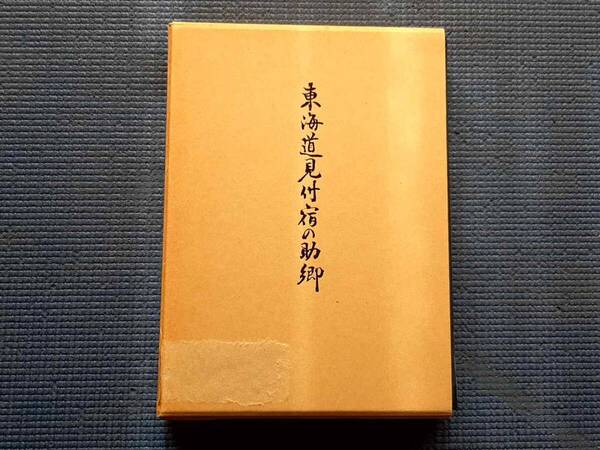 東海道見付宿の助郷